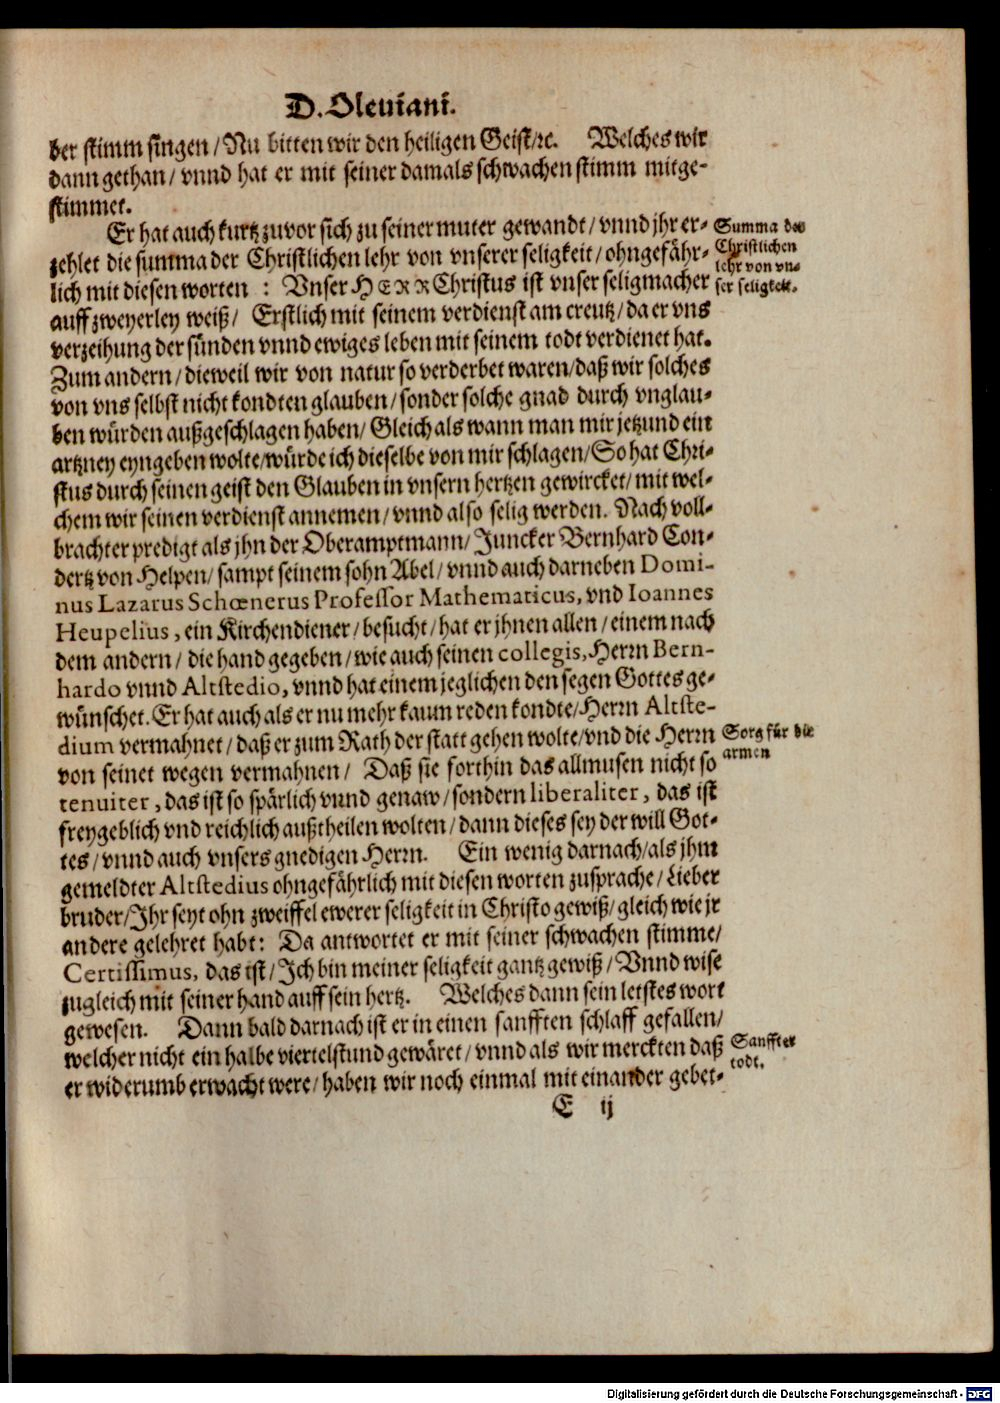 D. Oleviani.
ber stimm singen / Nu bitten wir den heiligen Geist / ꝛc. Welches wir
dann gethan / vnnd hat er mit seiner damals schwachen stimm mitge-
stimmet.
Er hat auch kurtz zuvor sich zu seiner muter gewandt / vnnd jhr er-
zehlet die summa der Christlichen lehr von vnserer seligkeit / ohngefähr-
lich mit diesen worten : Vnser HERR Christus ist vnser seligmacher
auff zweyerley weiß / Erstlich mit seinem verdienst am creutz / da er vns
verzeihung der sünden vnnd ewiges leben mit seinem todt verdienet hat.
Zum andern / dieweil wir von natur so verderbet waren / daß wir solches
von vns selbst nicht kondten glauben / sonder solche gnad durch vnglau-
ben würden außgeschlagen haben / Gleich als wann man mir jetzund ein
artzney eyngeben wolte / würde ich dieselbe von mir schlagen / So hat Chri-
stus durch seinen geist den Glauben in vnsern hertzen gewircket / mit wel-
chem wir seinen verdienst annemen / vnnd also selig werden. Nach voll-
brachter predigt als jhn der Oberamptmann / Juncker Bernhard Con-
dertz von Helpen / sampt seinem sohn Abel / vnnd auch darneben Domi-
nus Lazarus Schœnerus Professor Mathematicus, vnd Ioannes
Heupelius, ein Kirchendiener / besucht / hat er jhnen allen / einem nach
dem andern / die hand gegeben / wie auch seinen collegis, Herrn Bern-
hardo vnnd Altstedio, vnnd hat einem jeglichen den segen Gottes ge-
wünschet. Er hat auch als er nu mehr kaum reden kondte / Herrn Altste-
dium vermahnet / daß er zum Rath der statt gehen wolte / vnd die Herrn
von seinet wegen vermahnen / Daß sie forthin das allmusen nicht so
tenuiter, das ist so spärlich vnnd genaw / sondern liberaliter, das ist
freygeblich vnd reichlich außtheilen wolten / dann dieses sey der will Got-
tes / vnnd auch vnsers gnedigen Herrn. Ein wenig darnach / als jhm
gemeldter Altstedius ohngefährlich mit diesen worten zusprache / Lieber
bruder / Ihr seyt ohn zweiffel ewerer seligkeit in Christo gewiß / gleich wie jr
andere gelehret habt: Da antwortet er mit seiner schwachen stimme /
Certissimus, das ist / Ich bin meiner seligkeit gantz gewiß / Vnnd wise
zugleich mit seiner hand auff sein hertz. Welches dann sein letstes wort
gewesen. Dann bald darnach ist er in einen sanfften schlaff gefallen /
welcher nicht ein halbe viertelstund gewäret / vnnd als wir merckten daß
er widerumb erwacht were / haben wir noch einmal mit einander gebet-
E ij
Summa der
Christlichen
lehr von vn-
ser seligkeit.
Sorg für die
armen
Sanffter
todt.
Digitalisierung gefördert durch die Deutsche Forschungsgemeinschaft - DFG